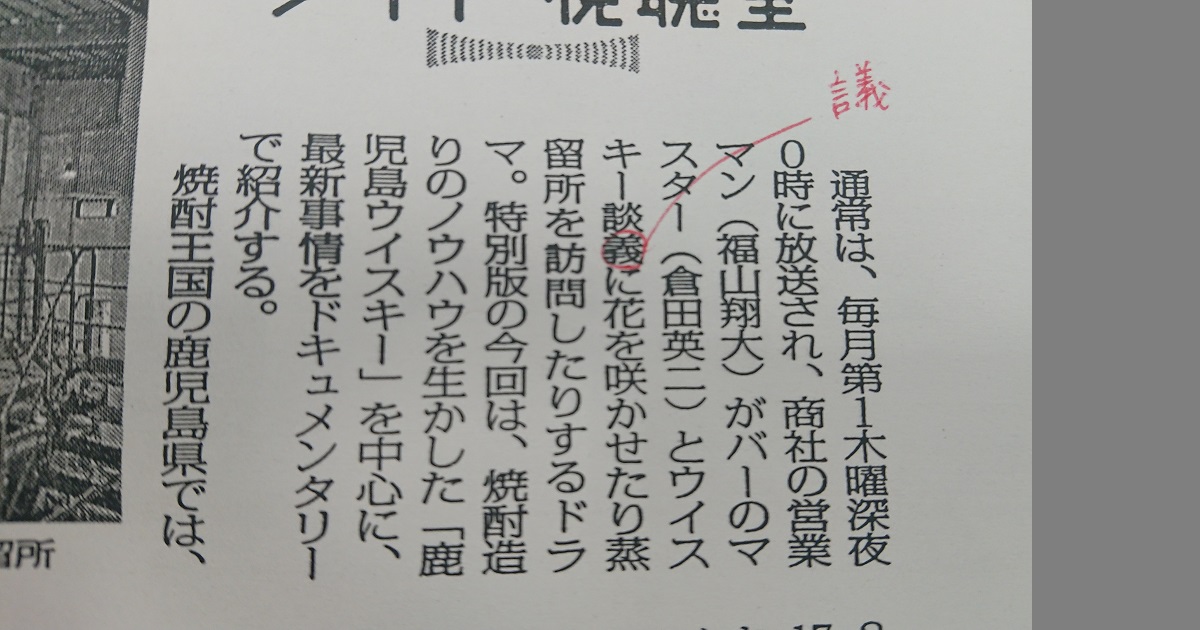 視聴室
議
通常は、毎月第1木曜深夜
0時に放送され、商社の営業
マン（福山翔大）がバーのマ
スター（倉田英二）とウイス
キー談義に花を咲かせたり蒸
留所を訪問したりするドラ
マ。特別版の今回は、焼酎造
りのノウハウを生かした「鹿
児島ウイスキー」を中心に、
最新事情をドキュメンタリー
で紹介する。
焼酎王国の鹿児島県では、
留所